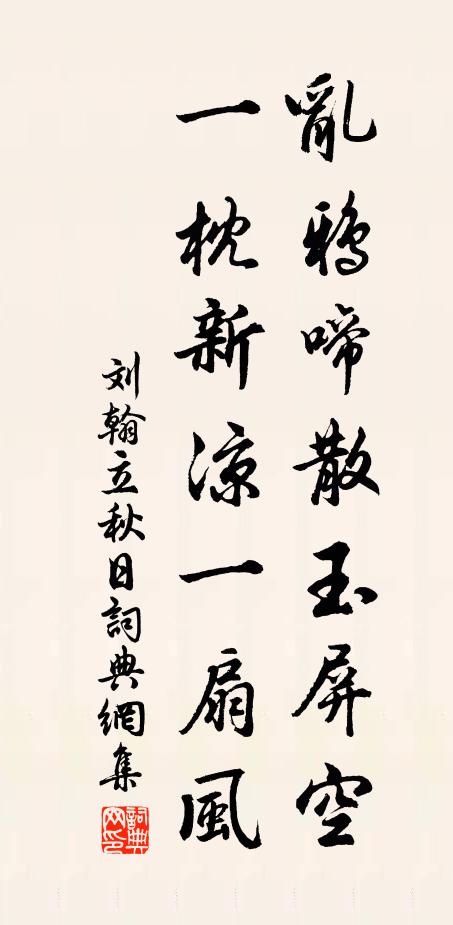 亂鴉啼散玉屏空
一枕新涼一扇風
刘翰立秋日詞典網集
詞典网印